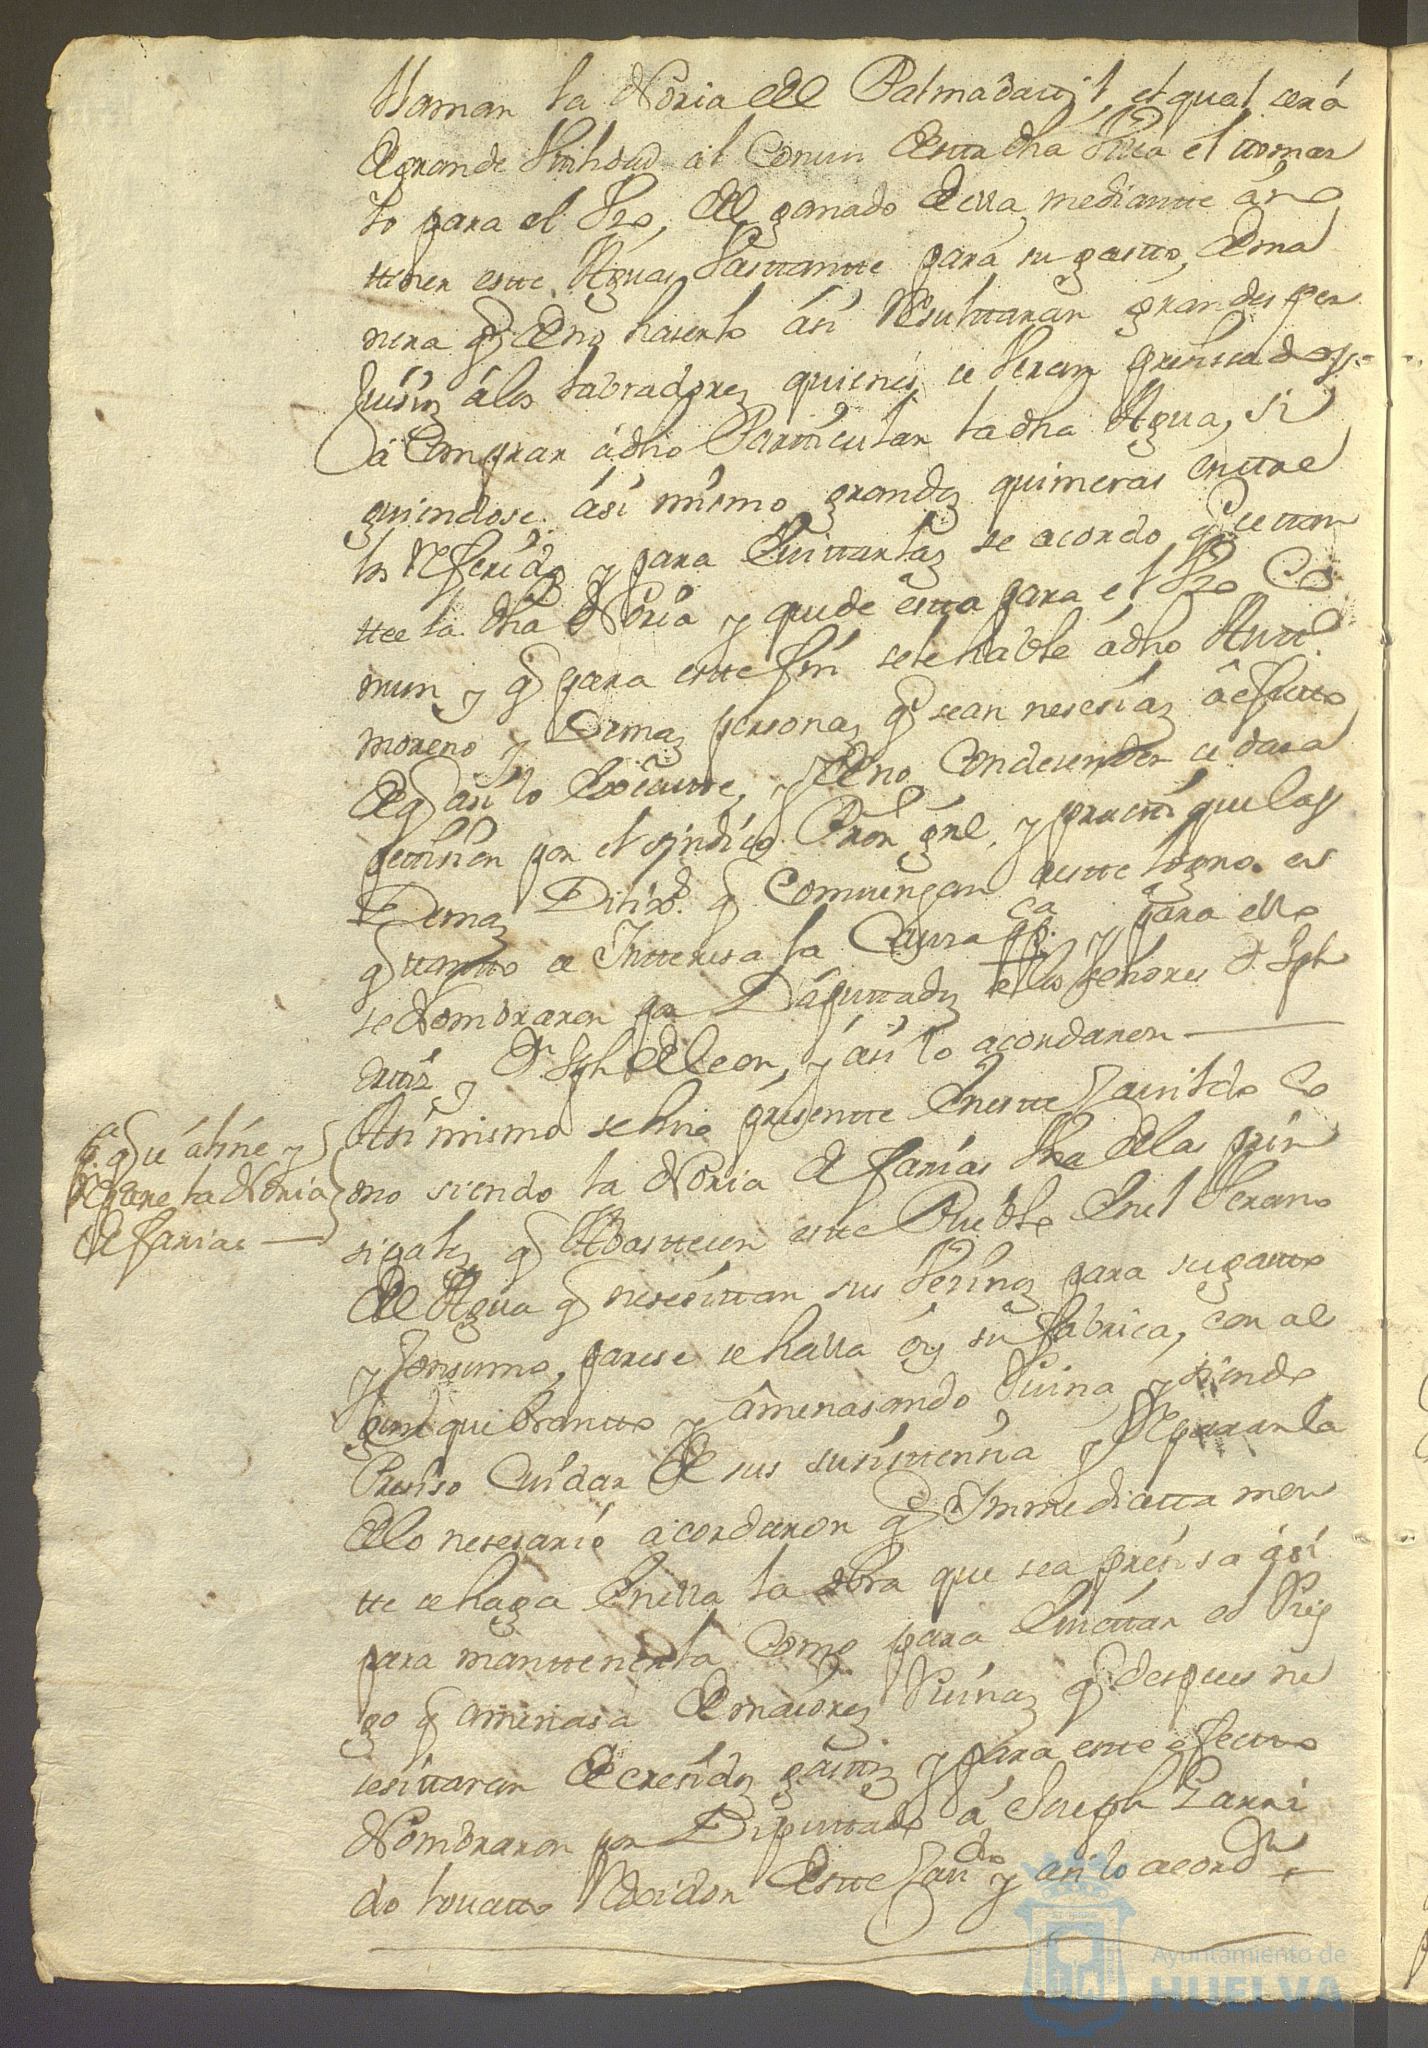 llaman la Noria del Palmadauil, el qual cerá
de grande Vtilidad al Comun desta dha Villa el tomar
lo para el Vzo, del ganado de ella, mediantte á
ttener estte Aguas vasttantte para su gastto, de ma
nera q̃ de no haserlo ási Resulttaran grandes per
Juisios á los labradores quienes ce veran presisados
á Comprar á dho Partticular la dha Agua, si
guiendose ási mismo grandes quimeras enttre
los Referidos y para Euittarlas se acordo q̃ ce ttan
ttee la dha Noria y quede estta para el Vzo Co
mun y q̃ para estte fin se le hable á dho Antt.º
moreno y Demas personas q̃ sean nesesias á efectto
de q̃ asi lo Executte, y de no Condesender ce dara
pettision por el sindico Pror. gnl. y practtiquelas
Demas Dilix.s q̃ Comvengan a estte logro en
q̃ tantto ce Ynttereza la Causa pp.ca y para ello
se Nombraron por Diputtados a los señores D. Jph
ruiz y D.n Jph de Leon, y ási lo acordaron
Asi mismo se hiso presentte En estte Cauildo Co
mo siendo la Noria de farias Vna de las prin
sipales q̃ Abasttesen estte Pueblo En el Verano
del Agua q̃ nesesittan sus Vezinos para su gastto
y Consumo, parese ce halla óy su fabrica, con al
gun quebrantto y ámenasando Ruina, y siendo
Presiso Cuidar de sus susisttensia y Repararla
de lo nesesario acordaron q̃ Ymmediatta men
tte ce haga En ella la obra que sea presisa ási
para manttenerla Como para Euittar el Ries
go q̃ amenasa de maiores Ruinas q̃ despues ne
sesittaran de cresidos gasttos y para estte efectto
Nombraron por Diputtado á Joseph Garri
do louatto Rexidor de estte Cau.do y asi lo acord.n
p.a q̃ ce áliñe y
Repare la Noria
de farias
Ayuntamiento de
HUELVA